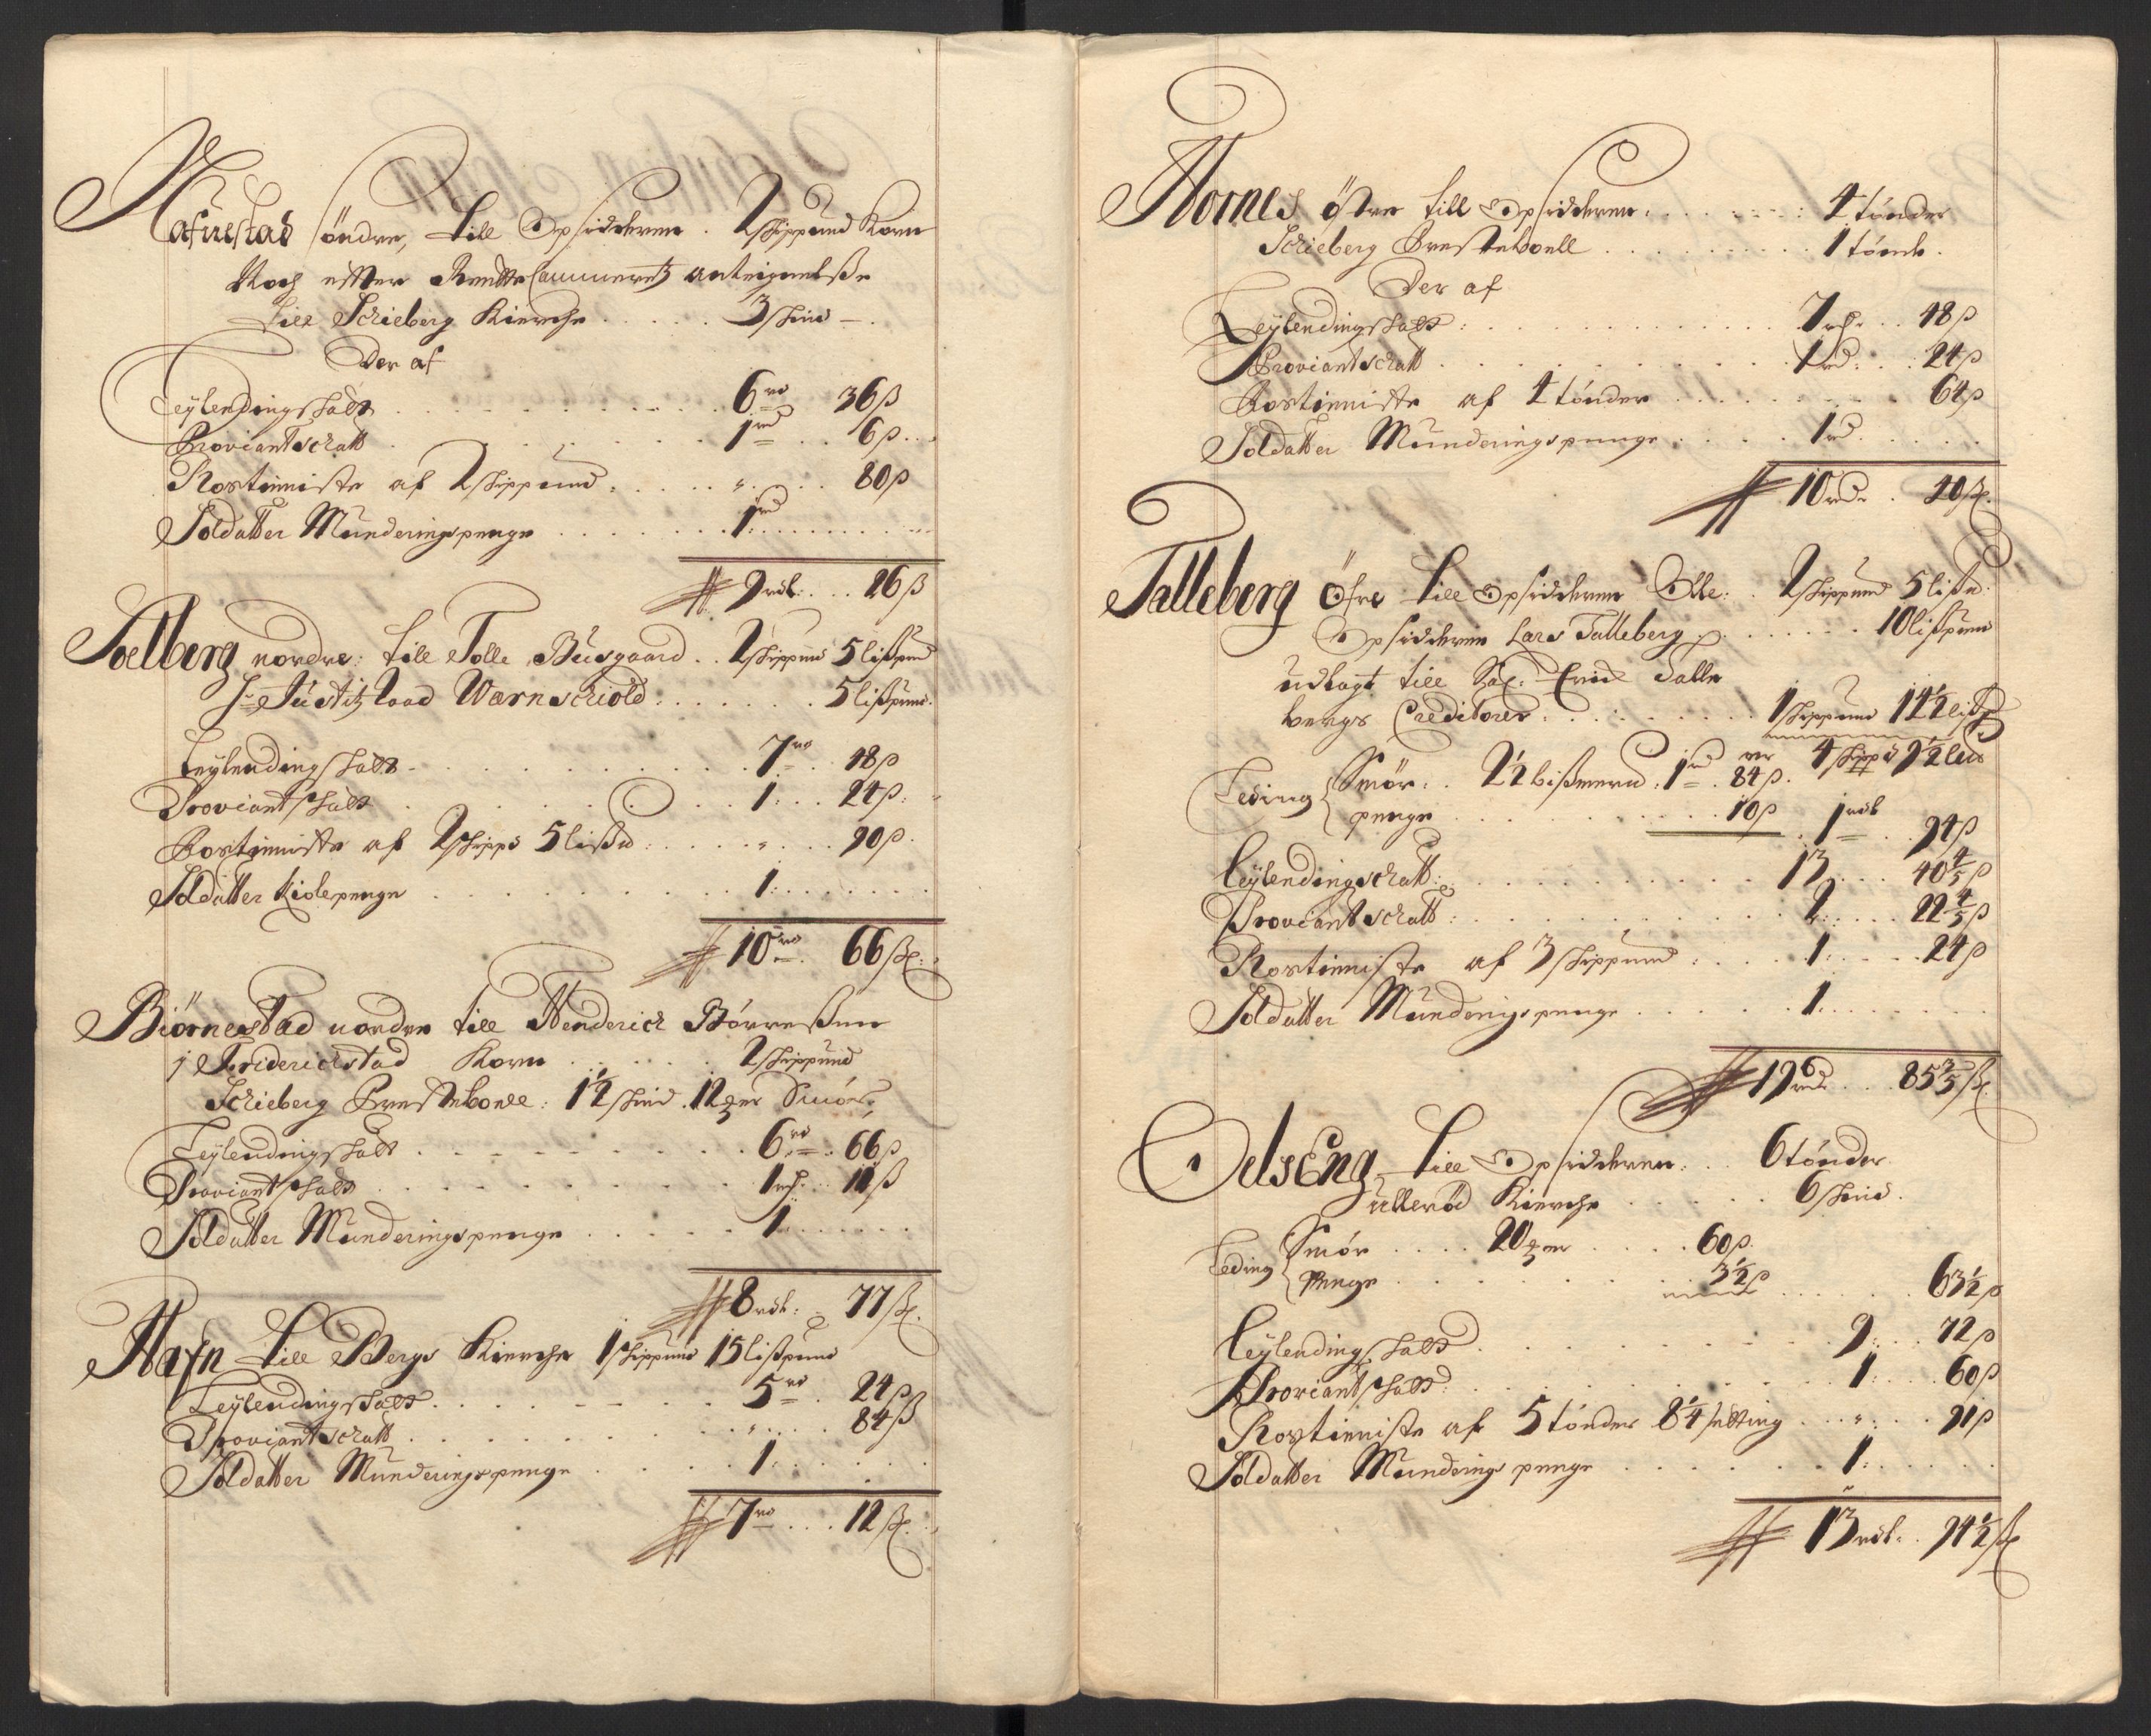 Hafuestad söndre, till Opsidderen . 2 Skippund Korn
Noch efter Rentte Cammeretz antegnelsße
till Schieberg Kierche . . . . 3 skind
Der af
Leylendingskatt . . . 6 rd 36 ß
Proviantschatt . . . 1 rd 6 ß
Rostienniste af 2 skippund . . . „ . . 80 ß
Soldatter Munderingspenge . . . 1 rd
9 rdl: . . 26 ß
Soelberg nordre: till Tolle Busgaard . . 2 Skippund 5 lißpund
H: Justitz Raad Warnschiold: . . . 5 lißpund.
Leylendingskatt . . . 7 rd 48 ß
Proviantskatt . . . 1: . . 24 ß:
Rostienniste af 2 skippd 5 lißd: . . . „ . . 90 ß.
Soldatter Kiolepenge . . . 1:
10 rd. 66 ß.
Biörnestad nordre till Henderich Börresßen
i Friderichstad Korn . . . 2 skippund
Schieberg Presteboell: 1½ skind. 12 ᛭er Smör.
Leylendingskatt . . . 6 rd: 66 ß
Proviantskatt . . . 1 rd: 11 ß
Soldatter Munderingspenge . . . 1:
8 rdl: 77 ß.
Hafn till Bergs Kierche 1 skippund 15 lißpund
Leylendingskatt . . . 5 rd . 24 ß
Proviantschatt . . . „ . . 84 ß
Soldatter Munderingspenge . . . 1:
7 rd . . . 12 ß.
Hornes östre till Opsidderen: . . . 4 tönder
Schieberg Presteboell . . . 1 tönde.
Der af
Leylendingskatt: . . . 7 rd: . . 48 ß
Proviantschatt . . . 1 rd: . . 24 ß
Rostienniste af 4 tönder . . . 64 ß
Soldatter Munderingspenge . . . 1 rd
10 rdr. 40 ß.
Talleberg öfre till Opsidderen Olle: . 2 Skippund 5 lißd:
Opsidderen Lars Talleberg . . . 10 lißpund
udlagt till Sal: Erich Talle
bergs Creditorer. . . . 1 skippund 14½ lißp
4 skippd 9½ lißd
Leding { Smör: . 2½ bißmerd: 1 rd . 84 ß.
penge . . . 10 ß . 1 rdl . 94 ß
Leylendingschatt: . . . 13 . . 40 4/5 ß
Proviantschatt: . . . 2: . . 22 4/5 ß
Rostienniste af 3 skippund . . . 1: . . 24 ß
Soldatter Munderingspenge . . . 1:
19 rd . . 85 3/5 ß.
OelsEng, till Opsidderen: . . 6 tönder
Ullerød Kierche . . . 6 skind.
Leding { Smör . . . 20 ᛭er . . . 60 ß.
Penge . . . 3½ ß . . . 63½ ß
Leylendingskatt . . . 9: . . 72 ß
Proviantskatt: . . . 1: . . 60 ß
Rostienniste af 5 tönder 8¼ setting . . „: . . 91 ß
Soldatter Munderings penge . . . 1:
13 rdl: . 94½ ß